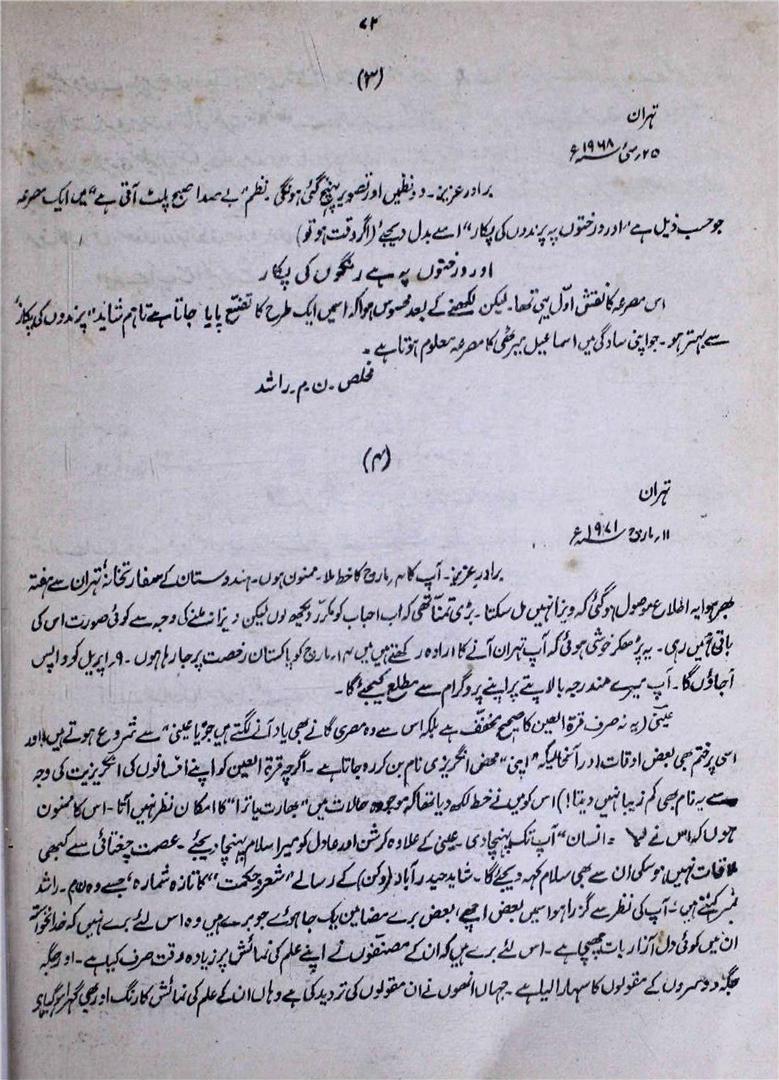 ۷۲
(۳)
تہران
۲۵؍مئی ۱۹۶۸ء
برادر عزیز۔ دو نظمیں اور تصویر پہنچ گئی ہونگی نظم "بے صدا صبح پلٹ آئی ہے" میں ایک مصرعہ
جو حسب ذیل ہے "اور درختوں پہ پرندوں کی پکار" اسے بدل دیجئے (اگر وقت ہو تو)
اور درختوں پہ ہے رنگوں کی پکار
اس مصرعہ کا نقش اوّل یہی تھا۔ لیکن لکھنے کے بعد محسوس ہوا کہ اسمیں ایک طرح کا تصنّع پایا جاتا ہے تاہم شاید "پرندوں کی پکار"
سے بہتر ہو۔ جو اپنی سادگی میں اسماعیل میرٹھی کا مصرعہ معلوم ہوتا ہے۔
مخلص۔ ن۔م۔ راشد
(۴)
تہران
۱۱؍مارچ ۱۹۷۱ء
برادر عزیز۔ آپ کا ۴؍مارچ کا خط ملا۔ ممنون ہوں۔ ہندوستان کے سفارتخانہ، تہران سے ہفتہ
بھر ہوا یہ اطلاع موصول ہو گئی کہ ویزا نہیں مل سکتا۔ بڑی تمنا تھی کہ اب احباب کو مکرّر دیکھ لوں لیکن ویزا نہ ملنے کی وجہ سے کوئی صورت اس کی
باقی نہیں رہی۔ یہ پڑھکر خوشی ہوئی کہ آپ تہران آنے کا ارادہ رکھتے ہیں میں ۱۴؍مارچ کو پاکستان رخصت پر جا رہا ہوں۔ ۹؍اپریل کو واپس
آجاؤں گا۔ آپ میرے مندرجہ بالا پتے پر اپنے پروگرام سے مطلع کیجیے گا۔
عینی (یہ نہ صرف قرۃ العین کا صحیح مخفف ہے بلکہ اس سے وہ مصری گانے بھی یاد آنے لگتے ہیں جو "یا عینی" سے شروع ہوتے ہیں اور
اسی پر ختم بھی بعض اوقات اور آنحالیکہ "اینی" محض انگریزی نام بن کر رہ جاتا ہے۔ اگرچہ قرۃ العین کو اپنے افسانوں کی انگریزیت کی وجہ
سے یہ نام بھی کم زیبا نہیں دیتا!) اس کو میں نے خط لکھ دیا تھا کہ موجودہ حالات میں "بھارت یاترا" کا امکان نظر نہیں آتا۔ اس کا ممنون
ہوں کہ اس نے لا = انسان" آپ تک پہنچا دی۔ عینی کے علاوہ کرشن اور عادل کو میرا سلام پہنچا دیجئے۔ عصمت چغتائی سے کبھی
ملاقات نہیں ہو سکی ان سے بھی سلام کہہ دیجئے گا۔ شاید حیدرآباد (دکن) کے رسالے "شعر و حکمت" کا تازہ شمارہ، جسے وہ ن۔م۔ راشد
نمبر کہتے ہیں، آپ کی نظر سے گزرا ہو اسمیں بعض اچھے، بعض برے مضامین یک جا ہوئے جو برے ہیں وہ اس لئے برے نہیں کہ خدانخواستہ
ان میں کوئی دل آزار بات چھپی ہے۔ اس لئے برے ہیں کہ ان کے مصنفوں نے اپنے علم کی نمائش پر زیادہ وقت صرف کیا ہے۔ اور جگہ
جگہ دوسروں کے مقولوں کا سہارا لیا ہے۔ جہاں انھوں نے ان مقولوں کی تردید کی ہے وہاں ان کے علم کی نمائش کا رنگ اور بھی گہرا ہو گیا ہے